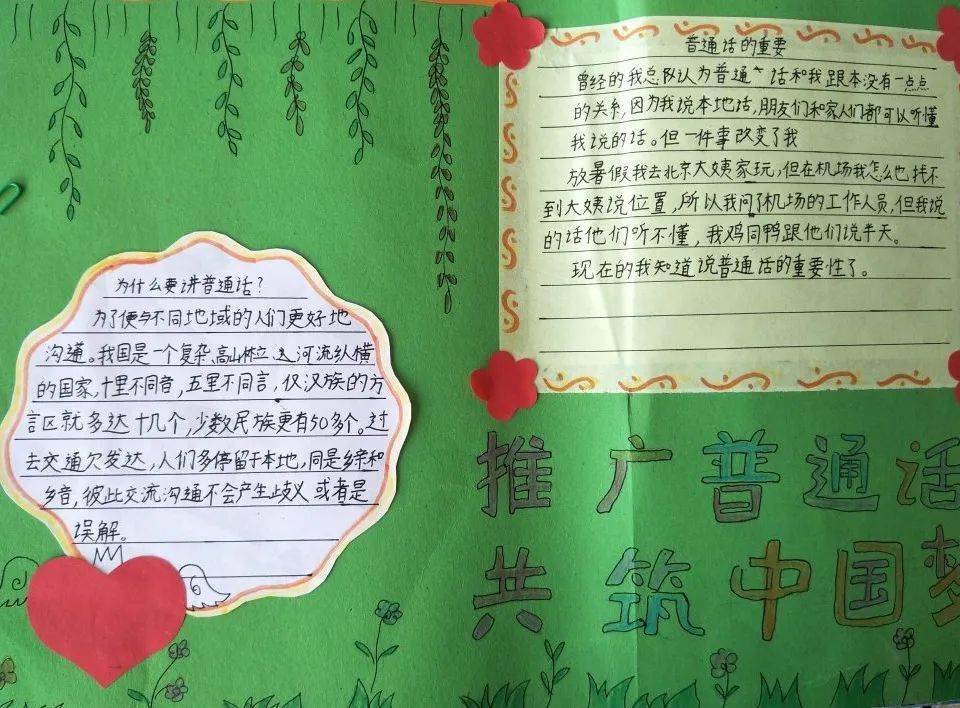 普通话的重要
曾经的我总以认为普通话和我跟本没有一点点
的关系,因为我说本地话,朋友们和家人们都可以听懂
我说的话。但一件事改变了我
放暑假我去北京大姨家玩,但在机场我怎么也找不
到大姨说位置,所以我问了机场的工作人员,但我说
的话他们听不懂,我鸡同鸭跟他们说半天。
现在的我知道说普通话的重要性了。
为什么要讲普通话?
为了便与不同地域的人们更好地
沟通。我国是一个复杂、高山林立、河流纵横
的国家,十里不同音,五里不同言,仅汉族的方
言区就多达十几个,少数民族更有50多个。过
去交通欠发达,人们多停留于本地,同是乡亲和
乡音,彼此交流沟通不会产生歧义或者是
误解。
推广普通话
共筑中国梦